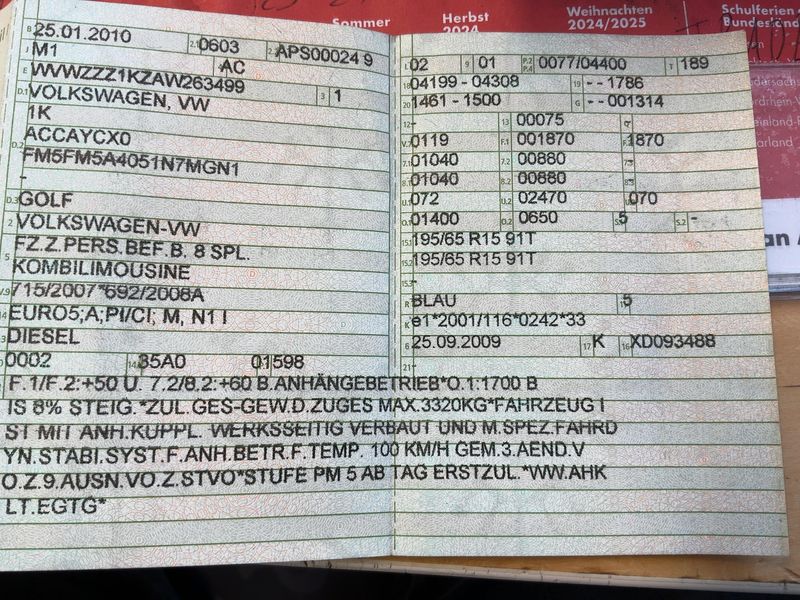 Sommer
Herbst
2024
Weihnachten
2024/2025
Schulferien
Bundesländ
an
B 25.01.2010 2.1 0603 2.2 APS00024 9
J M1 AC
E WVWZZZ1KZAW263499 3 1
D.1 VOLKSWAGEN, VW
1K
D.2 ACCAYCX0
FM5FM5A4051N7MGN1
-
D.3 GOLF
2 VOLKSWAGEN-VW
5 FZ.Z.PERS.BEF.B. 8 SPL.
KOMBILIMOUSINE
V.9 715/2007*692/2008A
14 EURO5;A;PI/CI; M, N1 I
DIESEL
0002 35A0 01598
L 02 9 01 P.2 P.4 0077/04400 T 189
18 04199 - 04308 19 - - 1786
20 1461 - 1500 G - - 001314
12 - 13 00075 Q -
V.7 0119 F.1 001870 F.2 1870
7.1 01040 7.2 00880 7.3 -
8.1 01040 8.2 00880 8.3 -
U.1 072 U.2 02470 U.3 070
O.1 01400 O.2 0650 S.1 5 S.2 -
15.1 195/65 R15 91T
15.2 195/65 R15 91T
15.3 -
R BLAU 5
K e1*2001/116*0242*33
6 25.09.2009 17 K 16 XD093488
21 -
F.1/F.2:+50 U. 7.2/8.2:+60 B.ANHÄNGEBETRIEB*O.1:1700 B
IS 8% STEIG.*ZUL.GES-GEW.D.ZUGES MAX.3320KG*FAHRZEUG I
ST MIT ANH.KUPPL. WERKSSEITIG VERBAUT UND M.SPEZ.FAHRD
YN.STABI.SYST.F.ANH.BETR.F.TEMP. 100 KM/H GEM.3.AEND.V
O.Z.9.AUSN.VO.Z.STVO*STUFE PM 5 AB TAG ERSTZUL.*WW.AHK
LT.EGTG*